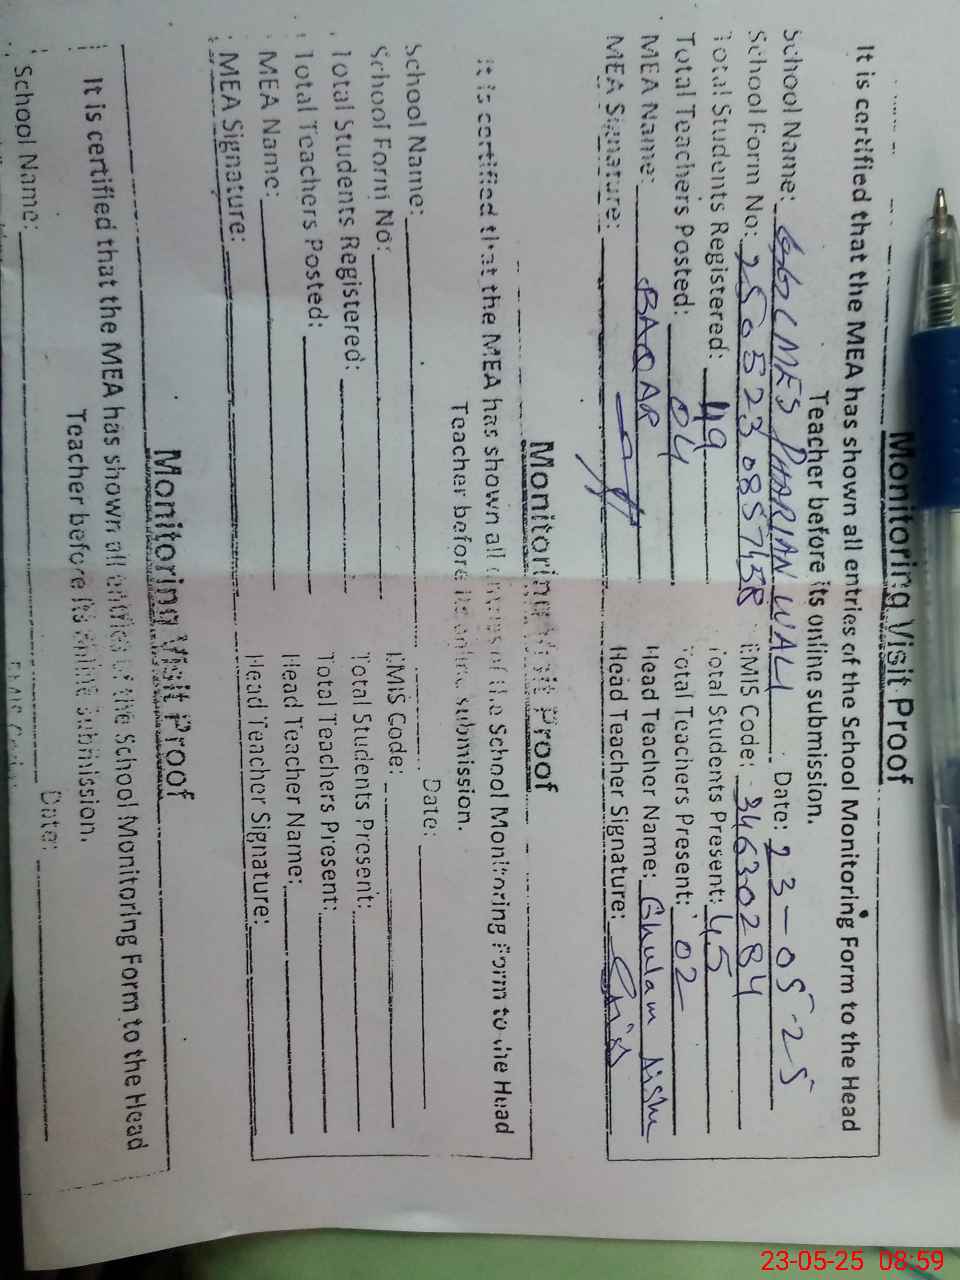 Monitoring Visit Proof
It is certified that the MEA has shown all entries of the School Monitoring Form to the Head
Teacher before its online submission.
School Name: GGCMES DHARIAN WALI Date: 23-05-25
School Form No: 250523085743R EMIS Code: 34630284
Total Students Registered: 49 Total Students Present: 45
Total Teachers Posted: 04 Total Teachers Present: 02
MEA Name: BAQAR Head Teacher Name: Ghulam Aisha
MEA Signature: Head Teacher Signature:
Monitoring Visit Proof
It is certified that the MEA has shown all entries of the School Monitoring Form to the Head
Teacher before its online submission.
School Name: Date:
School Form No: EMIS Code:
Total Students Registered: Total Students Present:
Total Teachers Posted: Total Teachers Present:
MEA Name: Head Teacher Name:
MEA Signature: Head Teacher Signature:
Monitoring Visit Proof
It is certified that the MEA has shown all entries of the School Monitoring Form to the Head
Teacher before its online submission.
School Name: Date:
23-05-25 08:59